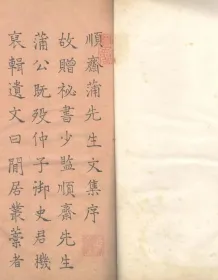 順齋蒲先生文集序
故贈秘書少監順齋先生
蒲公既殁仲子御史君機
裒輯遺文曰閒居叢藁者